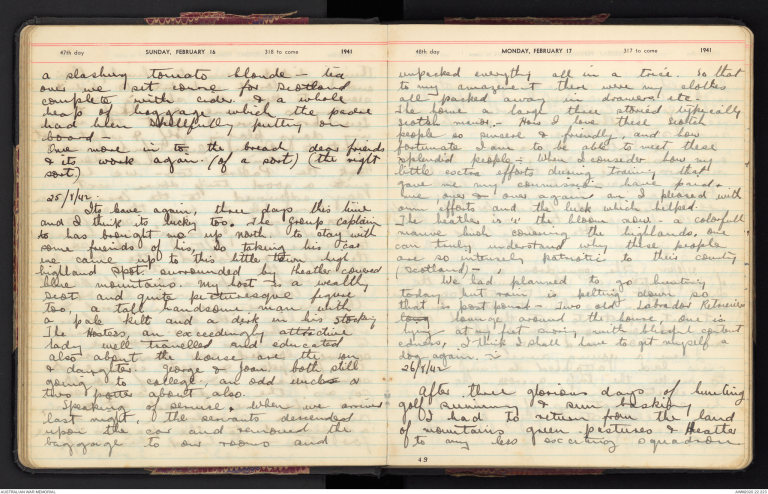 47th day SUNDAY, FEBRUARY 16 318 to come 1941
a slashing tomato blonde – tea
over we set course for Scotland
complete with cider & a whole
heap of baggage which the padre
had been skillfully putting on
board –
One more in to the bread dear friends
& its work again. (of a sort) (the right
sort)
25/8/42.
Its leave again, three days this time
and I think its lucky too. The Group Captain
has brought me up north to stay with
some friends of his, so taking his car
we came up to this little town high
highland spot surrounded by Heather covered
blue mountains. My host is a wealthy
Scot and quite picturesque figure
too, a tall handsome man with
a pale kilt and a dirk in his stocking
The Hostess, an exceedingly attractive
lady well travelled and educated
also about the house are the son
& daughter. George & Joan, both still
going to college, an odd uncle &
two potter about also.
Speaking of service, when we arrived
last night, the servants descended
upon the car and removed the
baggage to our rooms and
48th day MONDAY, FEBRUARY 17 317 to come 1941
unpacked everything all in a trice. So that
to my amazement there were my clothes
all packed away in drawers etc.
The home a large three storied typically
Scotch manor. How I love these Scotch
people so sincere & friendly, and how
fortunate I am to be able to meet these
splendid people – When I consider how my
little extra efforts during training that
gave me my commission have paid
me over & over again am I pleased with
own efforts and the luck which helped.
The heather is "in" the bloom now – a colorfull
mauve hue covering the highlands. One
can truly understand why these people
are so intensely patriotic to their country
(Scotland) –
We had planned to go hunting
today but rain is pelting down so
that is postponed – Two old Labrador Retrievers
lounge around the house, one is
lying at my feet now with blissful content
I think I shall have to get myself a
dog again.
26/8/42
After three glorious days of hunting
golf swimming & sun baking
I had to return from the land
of mountains green pastures & heather
to my less exciting squadron
49
AUSTRALIAN WAR MEMORIAL